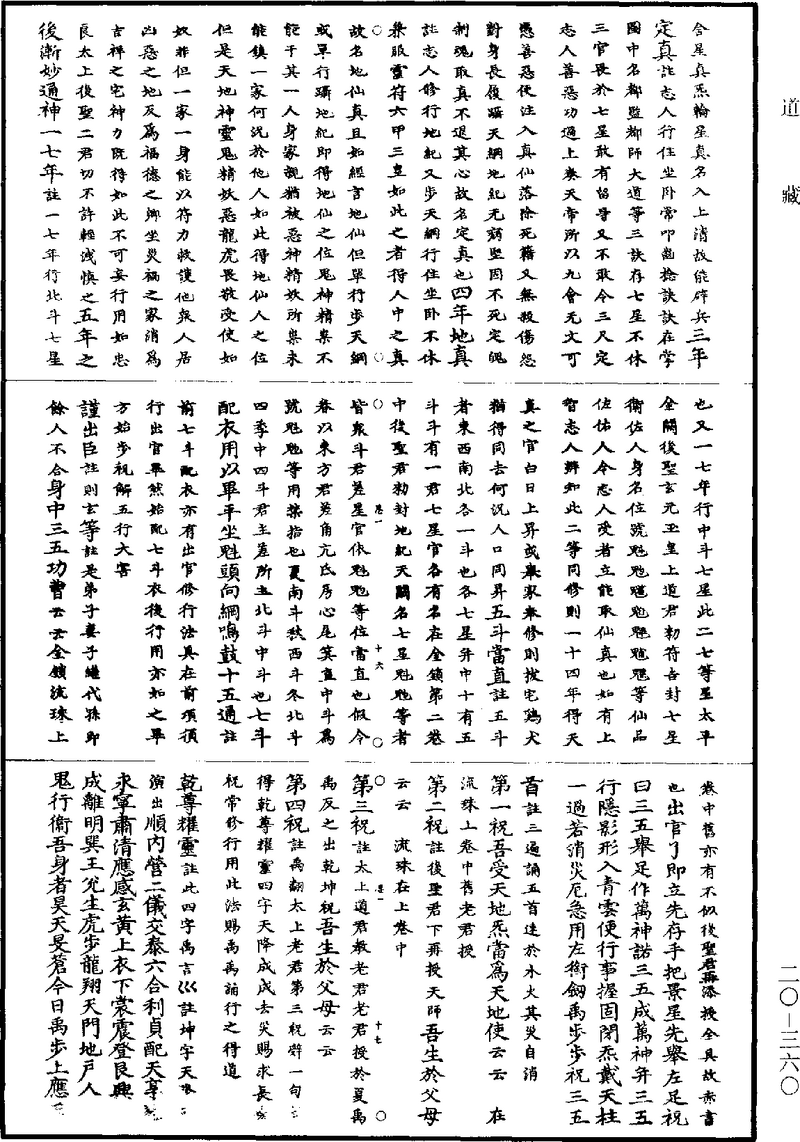 道藏
二〇—三六〇
合星真炁輪星真名入上清故能辟兵三年
定真註志人行住坐卧常叩齒捻訣訣在掌
圖中名都監都師大道等三訣存七星不休
三官畏於七星敢有留导又不敢令三尺定
志人善惡功過上奏天帝所以九會无文可
憑善惡便注入真仙落除死籍又無殺傷怨
對身長履躡天綱地紀无窮聖因不死定魄
制魂取真不退其心故名定真也四年地真
註志人修行地紀又步天綱行住坐卧不休
兼服靈符六甲三皇如此之者得人中之真
故名地仙真且如經言地仙但單行步天綱
或單行躡地紀即得地仙之位鬼神精祟不
能干其一人身家親猶被惡神精妖所祟未
能鎮一家何況於他人如此得地仙人之位
但是天地神靈鬼精妖惡龍虎畏敬受使如
奴非但一家一身能以符力救護他衆人居
凶惡之地反爲福德之鄉坐災禍之家消爲
吉祥之宅神力既得如此不可妄行用如忠
良太上後聖二君切不許輕洩慎之五年之
後漸妙通神一七年註一七年行北斗七星
也又一七年行中斗七星此二七等星太平
金闕後聖玄元玉皇上道君勑符吉封七星
衛佐人身名位號魁𩲃等仙品
佐佑人令志人受者立能取仙真也如有上
智志人辨知此二等同修則一十四年得天
真之官白日上昇或舉家奉修則拔宅鷄犬
猶得同去何況人口同昇五斗當直註五斗
者東西南北各一斗也各七星并中十有五
斗斗有一君七星官各有名在金鎖第二卷
中後聖君勑封地紀天關名七星魁等者
皆衆斗君差星官依魁等位當直也假令
春以東方君差角亢氐房心尾箕直中斗爲
號魁等用藥指也夏南斗秋西斗冬北斗
四季中四斗君主差所主北斗中斗也七斗
配衣用以單平坐魁頭向綱鳴鼓十五通註
前七斗配衣亦有出官修行法具在前項須
行出官單然始配七斗衣後行用亦如之畢
方始步祝解五行大害
謹出臣註則玄等註是弟子妻子繼代孫即
餘人不合身中三五功曹云云金鎖流珠上
卷中舊亦有不似後聖君再添授全具故赤書
也出官了即立先存手把景星先舉左足祝
曰三五舉足作萬神諾三五成萬神年三五
行隱影形入青雲便行事握固閉炁戴天柱
一過若消災厄急用左銜劔禹步步祝三五
首註三遍誦五首達於水火其災自消
第一祝吾受天地炁當爲天地使云云在
流珠上卷中舊老君授
第二祝註後聖君下再授天師吾生於父母
云云流珠在上卷中
第三祝註太上道君教老君老君授於夏禹
禹反之出乾坤祝吾生於父母云云
第四祝註禹翻太上老君第三祝辟一句
得乾尊耀靈四字天降成成去災賜求長
祝常修行用此法賜禹禹誦行之得道
乾尊耀靈註此四字禹言巛註坤字天
演出順內營二儀交泰六合利貞配天享
永寧肅清應感玄黃上衣下裳震登艮興
成離明巽王兊生虎步龍翔天門地戶人
鬼行衞吾身者昊天旻蒼今日禹步上應
卷一
十六
卷一
十七